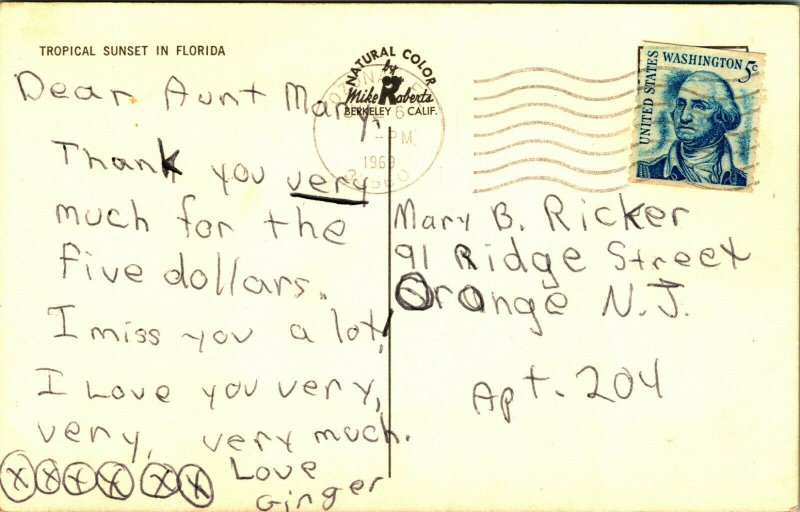 TROPICAL SUNSET IN FLORIDA
Dear Aunt Mary,
Thank you very
much for the
five dollars.
I miss you a lot,
I Love you very,
very, very much.
X X X X X X Love
Ginger
NATURAL COLOR
by
Mike Roberts
BERKELEY CALIF.
6
PM
1969
UNITED STATES
WASHINGTON 5c
Mary B. Ricker
91 Ridge Street
Orange N.J.
Apt. 204